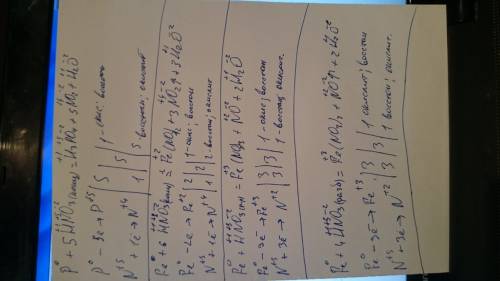 P⁰ + 5HNO₃(конц) = H₃PO₄ + 5NO₂ + H₂O
P⁰ - 5e → P⁺⁵ | 5 | 1 - окис; восстан
N⁺⁵ + 1e → N⁺⁴ | 1 | 5 | 5 восстан; окислит
Fe⁰ + 6HNO₃(конц) = Fe(NO₃)₂ + 3NO₂↑ + 3H₂O
Fe⁰ - 2e → Fe⁺² | 2 | 1 - окис; восстан
N⁺⁵ + 1e → N⁺⁴ | 1 | 2 | 2 - восстан; окислит
Fe⁰ + 4HNO₃ = Fe(NO₃)₃ + NO + 2H₂O
Fe⁰ - 3e → Fe⁺³ | 3 | 3 | 1 - окис; восстан
N⁺⁵ + 3e → N⁺² | 3 | 3 | 1 - восстан; окислит.
Fe⁰ + 4HNO₃(разб) = Fe(NO₃)₃ + NO↑ + 2H₂O
Fe⁰ - 3e → Fe⁺³ | 3 | 3 | 1 окислит; восстан
N⁺⁵ + 3e → N⁺² | 3 | 3 | 1 восстан; окислит.